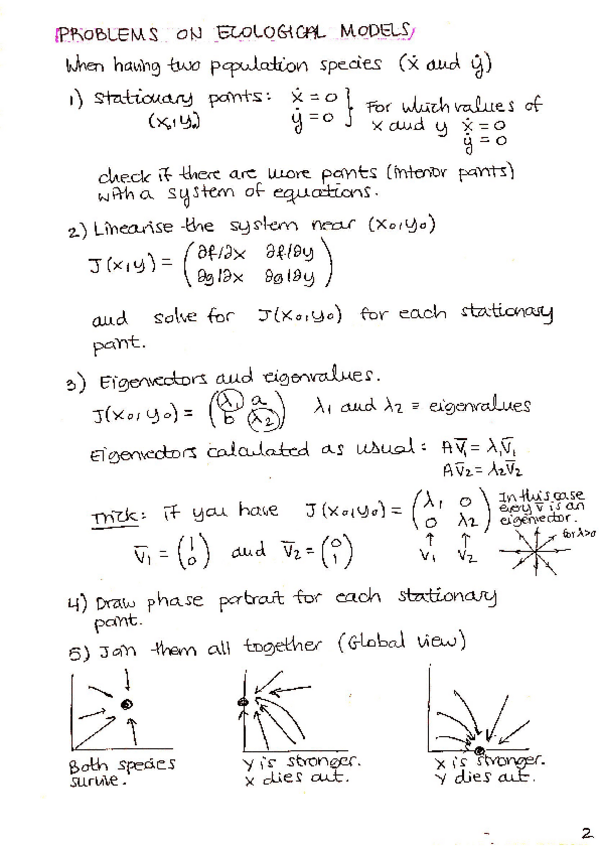 PROBLEMS ON ECOLOGICAL MODELS
When having two population species (ẋ and ẏ)
1) Stationary points: ẋ = 0 } For which values of
(x₀,y₀) ẏ = 0 x and y ẋ = 0
ẏ = 0
check if there are more points (interior points)
with a system of equations.
2) Linearise the system near (x₀,y₀)
J(x,y) = (∂f/∂x ∂f/∂y
∂g/∂x ∂g/∂y)
and solve for J(x₀,y₀) for each stationary
point.
3) Eigenvectors and eigenvalues.
J(x₀,y₀) = (λ₁ a λ₁ and λ₂ = eigenvalues
b λ₂)
Eigenvectors calculated as usual: Av̄₁ = λ₁v̄₁
Av̄₂ = λ₂v̄₂
Trick: if you have J(x₀,y₀) = (λ₁ 0 In this case
0 λ₂) every v̄ is an
eigenvector.
for λ>0
v̄₁ = (1 and v̄₂ = (0 ↑ ↑
0) 1) v₁ v₂
4) Draw phase portrait for each stationary
point.
5) Join them all together (Global view)
Both species
survive.
Y is stronger.
X dies out.
X is stronger.
Y dies out.
2